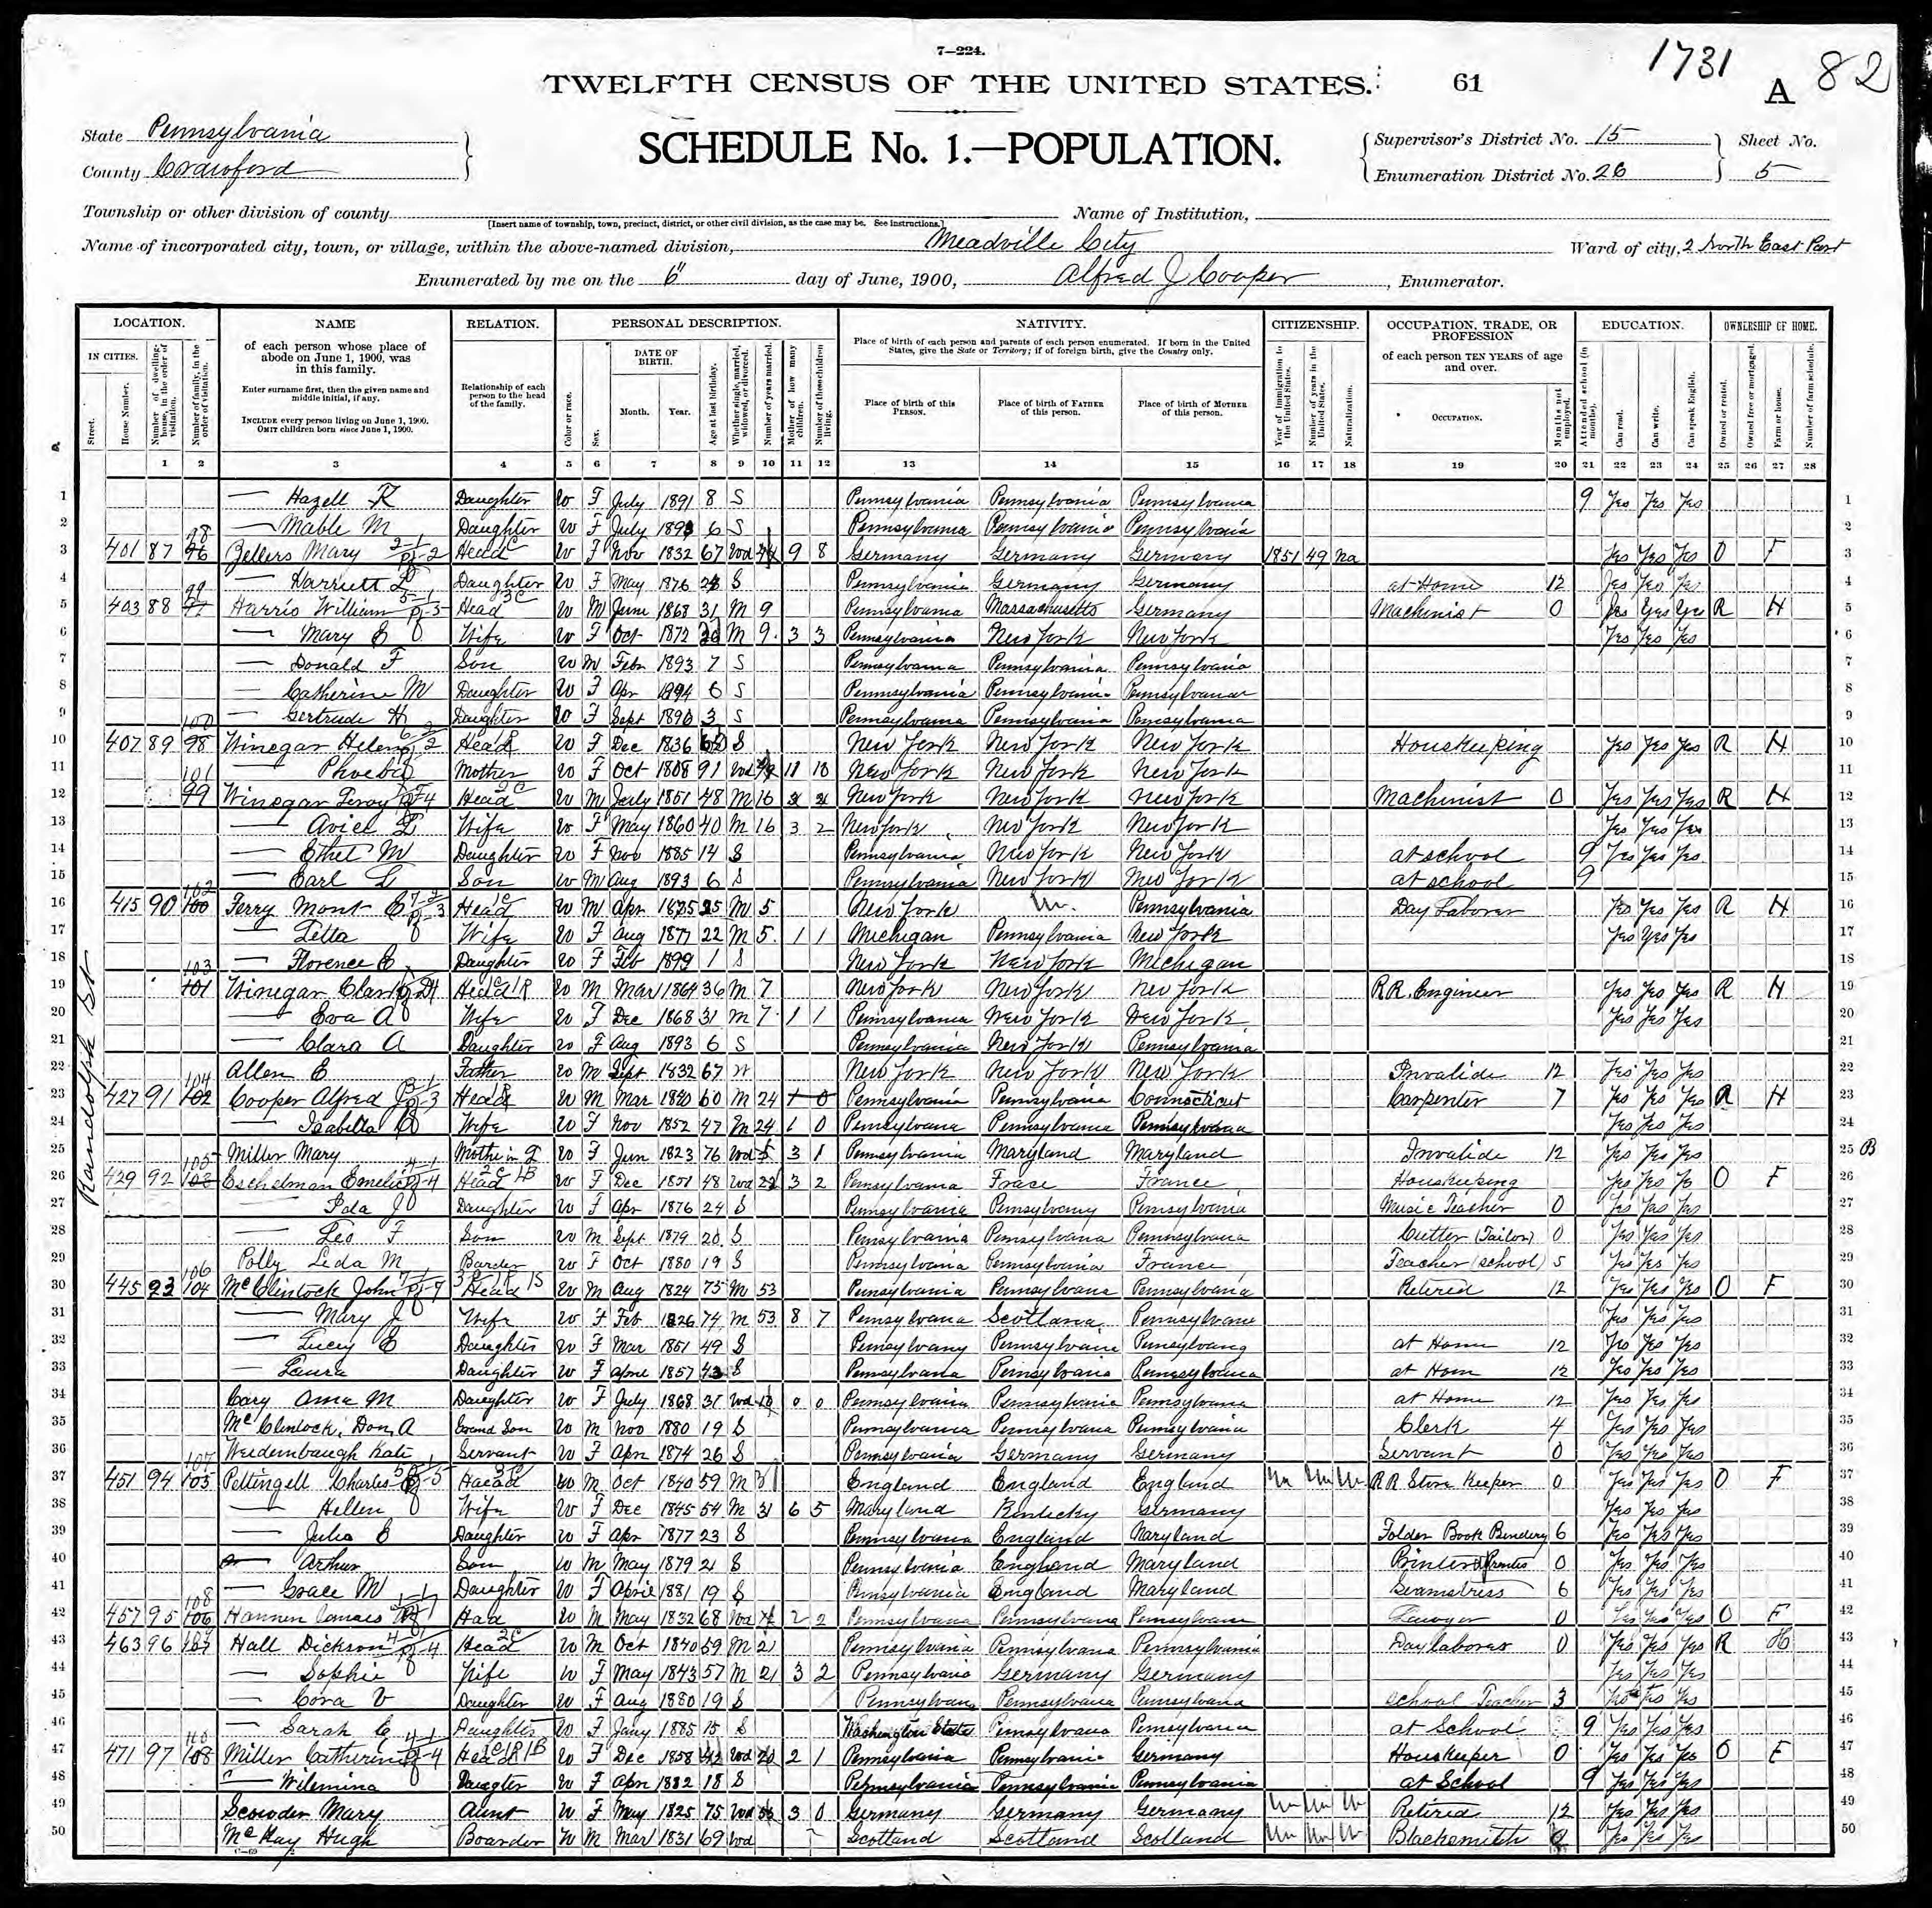 7—224.
1731
TWELFTH CENSUS OF THE UNITED STATES. 61 A 82
State Pennsylvania
County Crawford
SCHEDULE No. 1.—POPULATION.
Supervisor's District No. 15
Enumeration District No. 26
Sheet No.
5
Township or other division of county
[Insert name of township, town, precinct, district, or other civil division, as the case may be. See instructions.]
Name of Institution,
Name of incorporated city, town, or village, within the above-named division, Meadville City Ward of city, 2 North East Part
Enumerated by me on the 6" day of June, 1900, Alfred J Cooper, Enumerator.
LOCATION. NAME RELATION. PERSONAL DESCRIPTION. NATIVITY. CITIZENSHIP. OCCUPATION, TRADE, OR PROFESSION EDUCATION. OWNERSHIP OF HOME.
IN CITIES.
Street.
House Number.
Number of dwelling-house, in the order of visitation.
Number of family, in the order of visitation.
of each person whose place of abode on June 1, 1900, was in this family.
Enter surname first, then the given name and middle initial, if any.
INCLUDE every person living on June 1, 1900.
OMIT children born since June 1, 1900.
Relationship of each person to the head of the family.
Color or race.
Sex.
DATE OF BIRTH.
Month. Year.
Age at last birthday.
Whether single, married, widowed, or divorced.
Number of years married.
Mother of how many children.
Number of these children living.
Place of birth of each person and parents of each person enumerated. If born in the United States, give the State or Territory; if of foreign birth, give the Country only.
Place of birth of this PERSON.
Place of birth of FATHER of this person.
Place of birth of MOTHER of this person.
Year of immigration to the United States.
Number of years in the United States.
Naturalization.
of each person TEN YEARS of age and over.
OCCUPATION.
Months not employed.
Attended school (in months).
Can read.
Can write.
Can speak English.
Owned or rented.
Owned free or mortgaged.
Farm or house.
Number of farm schedule.
1 2 3 4 5 6 7 8 9 10 11 12 13 14 15 16 17 18 19 20 21 22 23 24 25 26 27 28
Randolph St
1 — Hazell K Daughter W F July 1891 8 S Pennsylvania Pennsylvania Pennsylvania 9 Yes Yes Yes 1
2 — Mable M Daughter W F July 1893 6 S Pennsylvania Pennsylvania Pennsylvania 2
3 401 87 Zellers Mary Head W F Nov 1832 67 Wd 9 8 Germany Germany Germany 1851 49 Na Yes Yes Yes O F 3
4 — Harriett L Daughter W F May 1876 S Pennsylvania Germany Germany at Home 12 Yes Yes Yes 4
5 403 88 Harris William Head W M June 1868 31 M 9 Pennsylvania Massachusetts Germany Machinist 0 Yes Yes Yes R H 5
6 — Mary E Wife W F Oct 1872 M 9 3 3 Pennsylvania New York New York Yes Yes Yes 6
7 — Donald F Son W M Febr 1893 7 S Pennsylvania Pennsylvania Pennsylvania 7
8 — Catherine M Daughter W F Apr 1894 6 S Pennsylvania Pennsylvania Pennsylvania 8
9 — Gertrude H Daughter W F Sept 1896 3 S Pennsylvania Pennsylvania Pennsylvania 9
10 407 89 Winegar Helen Head W F Dec 1836 S New York New York New York Houskeeping Yes Yes Yes R H 10
11 — Phoeba Mother W F Oct 1808 91 Wd 11 10 New York New York New York 11
12 Winegar Leroy Head W M July 1851 48 M 16 New York New York New York Machinist 0 Yes Yes Yes R H 12
13 — Aviel L Wife W F May 1860 40 M 16 3 2 New York New York New York Yes Yes Yes 13
14 — Ethel M Daughter W F Nov 1885 14 S Pennsylvania New York New York at school 9 Yes Yes Yes 14
15 — Earl L Son W M Aug 1893 6 S Pennsylvania New York New York at school 9 15
16 415 90 Ferry Mont E Head W M Apr 1875 25 M 5 New York Un. Pennsylvania Day Laborer Yes Yes Yes R H 16
17 — Letta Wife W F Aug 1877 22 M 5 1 1 Michigan Pennsylvania New York Yes Yes Yes 17
18 — Florence E Daughter W F Feb 1899 1 S New York New York Michigan 18
19 Winegar Clark Head W M Mar 1864 36 M 7 New York New York New York RR. Engineer Yes Yes Yes R H 19
20 — Eva A Wife W F Dec 1868 31 M 7 1 1 Pennsylvania New York New York Yes Yes Yes 20
21 — Clara A Daughter W F Aug 1893 6 S Pennsylvania New York Pennsylvania 21
22 Allen E Father W M Sept 1832 67 W New York New York New York Invalide 12 Yes Yes Yes 22
23 427 91 Cooper Alfred J Head W M Mar 1840 60 M 24 1 0 Pennsylvania Pennsylvania Connecticut Carpenter 7 Yes Yes Yes R H 23
24 — Isabella Wife W F Nov 1852 47 M 24 1 0 Pennsylvania Pennsylvania Pennsylvania Yes Yes Yes 24
25 Miller Mary Mother in L W F Jun 1823 76 Wd 3 1 Pennsylvania Maryland Maryland Invalide 12 Yes Yes Yes 25 B
26 429 92 Eschelman Emelie Head W F Dec 1851 48 Wd 3 2 Pennsylvania Frace France Houskeeping Yes Yes Ys O F 26
27 — Ida J Daughter W F Apr 1876 24 S Pennsylvania Pennsylvany Pennsylvania Music Teacher 0 Yes Yes Yes 27
28 — Leo F Son W M Sept 1879 20 S Pennsylvania Pennsylvana Pennsylvana Cutter (Tailor) 0 Yes Yes Yes 28
29 Polly Leda M Barder W F Oct 1880 19 S Pennsylvania Pennsylvania France Teacher (school) 5 Yes Yes Yes 29
30 445 93 McClintock John Head W M Aug 1824 75 M 53 Pennsylvania Pennsylvana Pennsylvania Retired 12 Yes Yes Yes O F 30
31 — Mary J Wife W F Feb 1826 74 M 53 8 7 Pennsylvana Scotland Pennsylvane Yes Yes Yes 31
32 — Lucy E Daughter W F Mar 1851 49 S Pennsylvany Pennsylvania Pennsylvany at Home 12 Yes Yes Yes 32
33 — Laura Daughter W F April 1857 43 S Pennsylvana Pennsylvania Pennsylvania at Hom 12 Yes Yes Yes 33
34 Cary Anna M Daughter W F July 1868 31 Wd 10 0 0 Pennsylvania Pennsylvania Pennsylvania at Home 12 Yes Yes Yes 34
35 McClintock, Don A Grand Son W M Nov 1880 19 S Pennsylvania Pennsylvana Pennsylvania Clerk 4 Yes Yes Yes 35
36 Weidenbaugh Kate Servant W F Apr 1874 26 S Pennsylvania Germany Germany Servant 0 Yes Yes Yes 36
37 451 94 Pettingell Charles Haead W M Oct 1840 59 M 31 England England England Un Un Un RR Store Keeper 0 Yes Yes Yes O F 37
38 — Hellen Wife W F Dec 1845 54 M 31 6 5 Maryland Kentucky Germany Yes Yes Yes 38
39 — Julia E Daughter W F Apr 1877 23 S Pennsylvania England Maryland Folder Book Bindery 6 Yes Yes Yes 39
40 — Arthur Son W M May 1879 21 S Pennsylvania England Maryland Printer 0 Yes Yes Yes 40
41 — Grace M Daughter W F April 1881 19 S Pennsylvania England Maryland Seamstress 6 Yes Yes Yes 41
42 457 95 Hannen Head W M May 1832 68 Wd 2 2 Pennsylvana Pennsylvana Pennsylvana Lawyer 0 Yes Yes Yes O F 42
43 463 96 Hall Dickson Head W M Oct 1840 59 M 21 Pennsylvania Pennsylvana Pennsylvania Day laborer 0 Yes Yes Yes R H 43
44 — Sophie Wife W F May 1843 57 M 21 3 2 Pennsylvania Germany Germany Yes Yes Yes 44
45 — Cora V Daughter W F Aug 1880 19 S Pennsylvana Pennsylvana Pennsylvana school Teacher 3 Yes Yes Yes 45
46 — Sarah E Daughter W F Jany 1885 15 S Washington State Pennsylvana Pennsylvania at School 9 Yes Yes Yes 46
47 471 97 Miller Catherine Head W F Dec 1858 Wd 2 1 Pennsylvania Pennsylvania Germany Houskeeper 0 Yes Yes Yes O F 47
48 — Wilemina Daugter W F Apr 1882 18 S Pennsylvania Pennsylvania Pennsylvania at School 9 Yes Yes Yes 48
49 Scowden Mary Aunt W F May 1825 75 Wd 3 0 Germany Germany Germany Un Un Un Retired 12 Yes Yes Yes 49
50 McKay Hugh Boarder W M Mar 1831 69 Wd Scotland Scotland Scotland Un Un Un Blacksmith Yes Yes Yes 50